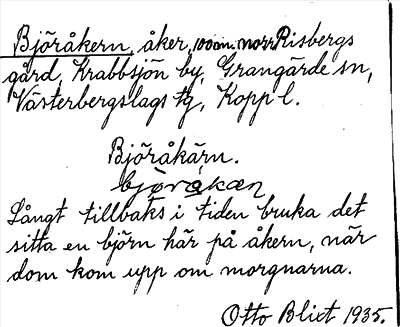 Björåkern, åker, 100 m. norr Risbergs
gård, Krabbsjön by, Grangärde sn,
Västerbergslags tg, Kopp l.
Björåkärn.
bjøråkæn
Långt tillbaks i tiden bruka det
sitta en björn här på åkern, när
dom kom upp om morgnarna.
Otto Blixt 1935.